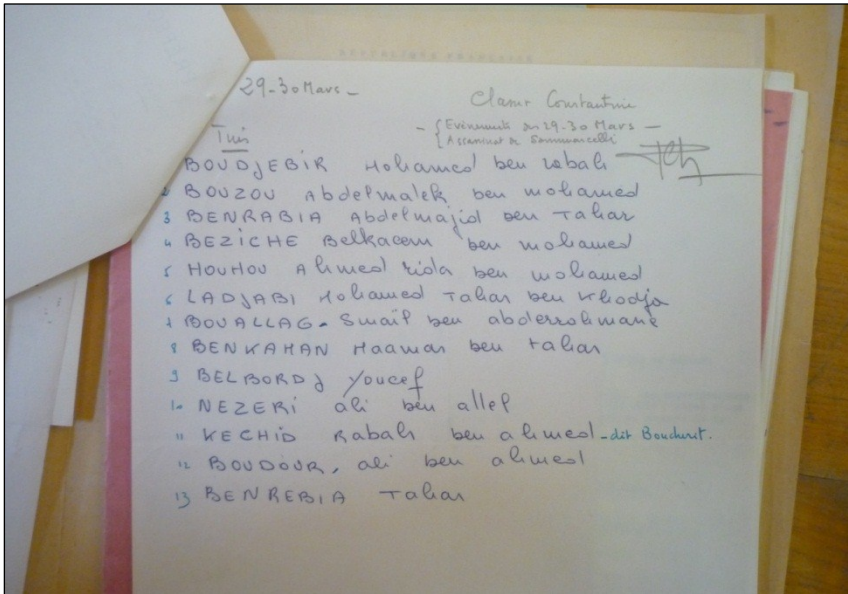 29-30 Mars -
Classer Constantine
- { Evènements du 29-30 Mars -
{ Assassinat de Sammarcelli
Tués
BOUDJEBIR Mohamed ben rabah
2 BOUZOU Abdelmalek ben mohamed
3 BENRABIA Abdelmajid ben Tahar
4 BEZICHE Belkacem ben mohamed
5 HOUHOU Ahmed rida ben mohamed
6 LADJABI Mohamed Tahar ben Khodja
7 BOUALLAG. Smaïl ben abderrohmane
8 BENKAHAN Maamar ben tahar
9 BELBORDJ Youcef
10 NEZERI ali ben allel
11 KECHID Rabah ben ahmed - dit Bouchrit.
12 BOUDOUR, ali ben ahmed
13 BENREBIA Tahar